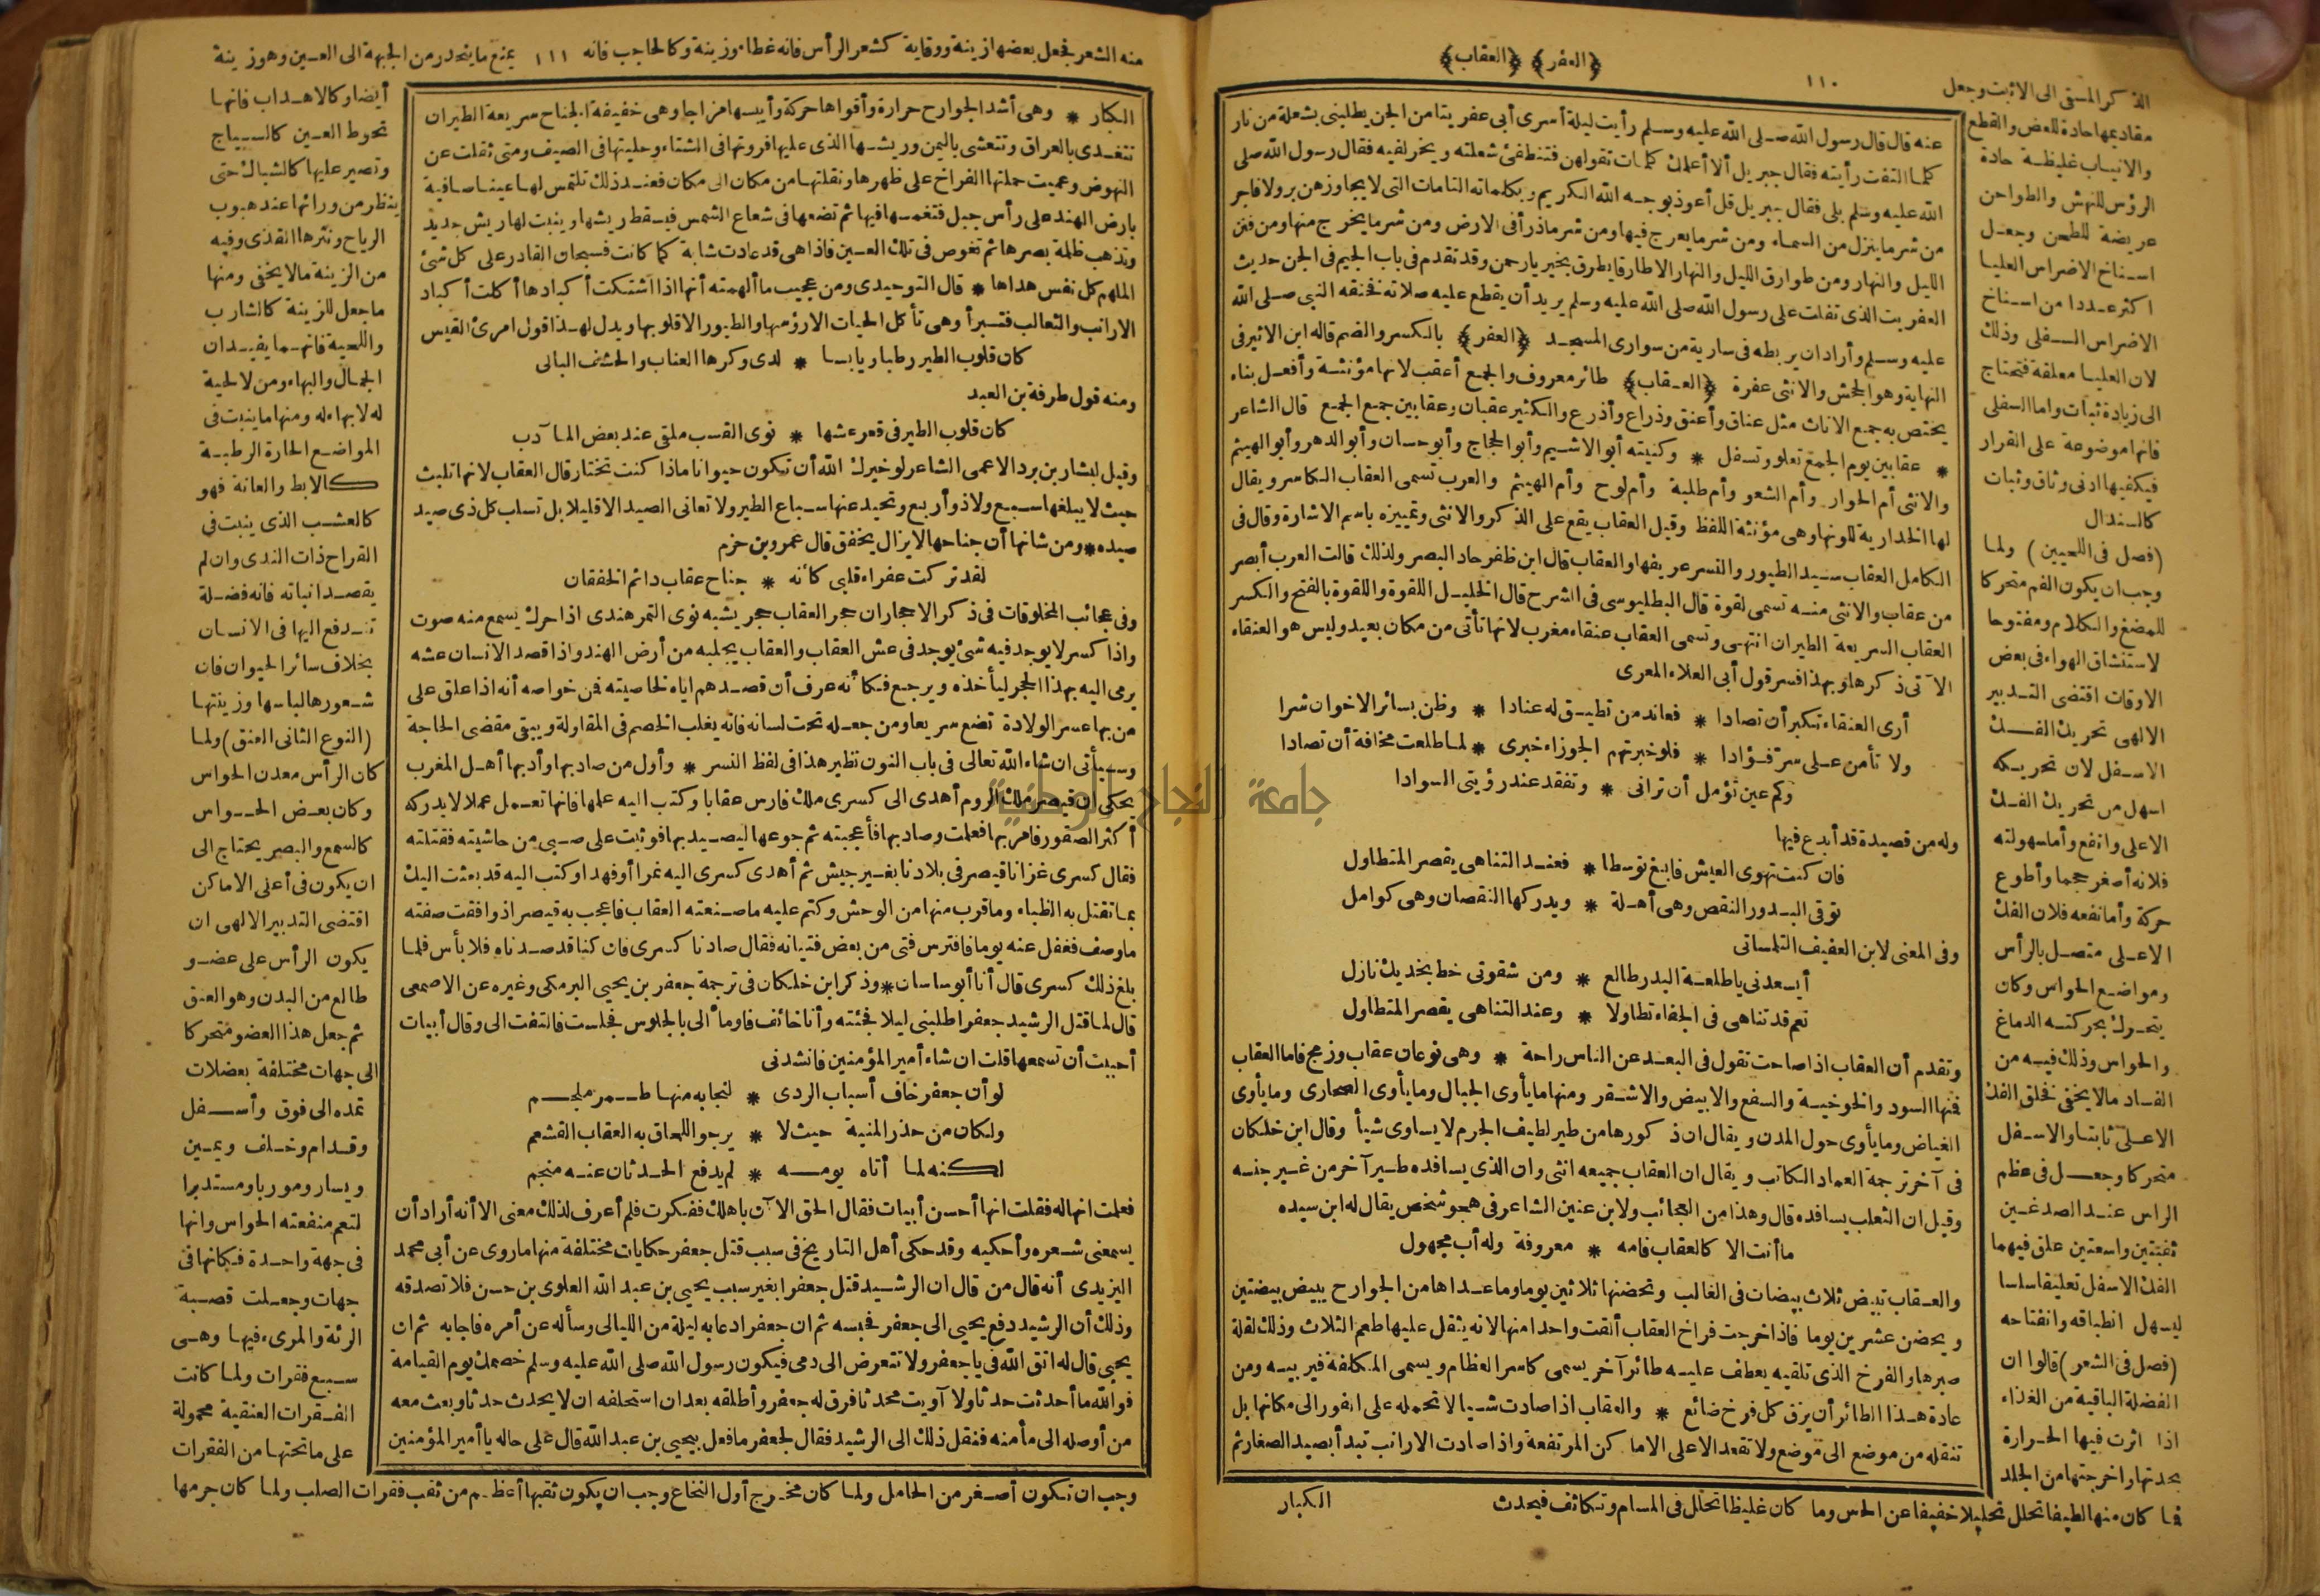 ﴿العفر﴾ ﴿العقاب﴾
١١٠
الذكر المستقى الى الاثبت وجعل
مقاديمها حادة للعض والقطع
والانياب غليظة حادة
الرؤس للنهش والطواحن
عريضة للطحن وجعل
اسناخ الاضراس العليا
اكثر عددا من اسناخ
الاضراس السفلى وذلك
لان العليا معلقة فتحتاج
الى زيادة ثبات واما السفلى
فانها موضوعة على القرار
فيكفيها ادنى وثاق وثبات
كالسندال
(فصل فى اللحيين) ولما
وجب ان يكون الفم متحركا
للمضغ والكلام ومفتوحا
لاستنشاق الهواء فى بعض
الاوقات اقتضى التدبير
الالهى تحريك الفك
الاسفل لان تحريكه
اسهل من تحريك الفك
الاعلى وانفع وأما سهولته
فلانه أصغر حجما وأطوع
حركة وأما نفعه فلان الفك
الاعلى متصل بالرأس
ومواضع الحواس وكان
يتحرك بحركته الدماغ
والحواس وذلك فيه من
الفساد مالا يخفى نخلق الفك
الاعلى ثابتا والاسفل
متحركا وجعل فى عظم
الراس عند الصدغين
ثقبتين واسعتين علق فيهما
الفك الاسفل تعليقا سلسا
ليسهل انطباقه وانفتاحه
(فصل فى الشعر) قالوا ان
الفضلة الباقية من الغذاء
اذا اثرت فيها الحرارة
بحدتها واخرجتها من الجلد
فما كان منها لطيفا تحلل تحليلا خفيفا عن الحس وما كان غليظا تخلل فى المسام وتكاثف فيحدث
عنه قال قال رسول الله صلى الله عليه وسلم رأيت ليلة أسرى أبى عفريتا من الجن يطلبنى بشعلة من نار
كلما التفت رأيته فقال جبريل ألا أعلمك كلمات تقولهن فتنطفئ شعلته ويخر لفيه فقال رسول الله صلى
الله عليه وسلم بلى فقال جبريل قل أعوذ بوجه الله الكريم وبكلماته التامات التى لا يجاوزهن بر ولا فاجر
من شر ما ينزل من السماء ومن شر ما يعرج فيها ومن شر ما ذرأ فى الارض ومن شر ما يخرج منها ومن فتن
الليل والنهار ومن طوارق الليل والنهار الا طارقا يطرق بخير يا رحمن وقد تقدم فى باب الجيم فى الجن حديث
العفريت الذى تفلت على رسول الله صلى الله عليه وسلم يريد أن يقطع عليه صلاته نخنقه النبى صلى الله
عليه وسلم وأراد ان يربطه فى سارية من سوارى المسجد ﴿العفر﴾ بالكسر والضم قاله ابن الاثير فى
النهاية وهو الجحش والانثى عفرة ﴿العقاب﴾ طائر معروف والجمع أعقب لانها مؤنثة وأفعل بناء
يختص به جمع الاناث مثل عناق وأعنق وذراع وأذرع والكثير عقبان وعقابين جمع الجمع قال الشاعر
* عقابين يوم الجمع تعلو وتسفل * وكنيته أبو الاشيم وأبو الحجاج وأبو حسان وأبو الدهر وأبو الهيثم
والانثى أم الحوار وأم الشعو وأم طلبة وأم لوح وأم الهيثم والعرب تسمى العقاب الكاسر ويقال
لها الخدارية للونها وهى مؤنثة اللفظ وقيل العقاب يقع على الذكر والانثى وتمييزه باسم الاشارة وقال فى
الكامل العقاب سيد الطيور والنسر عريفها والعقاب قال ابن ظفر حاد البصر ولذلك قالت العرب أبصر
من عقاب والانثى منه تسمى لقوة قال البطليوسى فى الشرح قال الخليل اللقوة واللقوة بالفتح والكسر
العقاب السريعة الطيران انتهى وتسمى العقاب عنقاء مغرب لانها تأتى من مكان بعيد وليس هو العنقاء
الآتى ذكرها وبهذا فسر قول أبى العلاء المعرى
أرى العنقاء تكبر أن تصادا * فعاند من تطيق له عنادا * وظن بسائر الاخوان شرا
ولا تأمن على سر فؤادا * فلو خبرتهم الجوزاء خبرى * لما طلعت مخافة أن تصادا
وكم عين تؤمل أن ترانى * وتفقد عند رؤيتى السوادا
وله من قصيدة قد أبدع فيها
فان كنت تهوى العيش فابغ توسطا * فعند التناهى يقصر المتطاول
توقى البدور النقص وهى أهلة * ويدركها النقصان وهى كوامل
وفى المعنى لابن العفيف التلمسانى
أيسعدنى يا طلعة البدر طالع * ومن شقوتى خط بخديك نازل
نعم قد تناهى فى الجفاء تطاولا * وعند التناهى يقصر المتطاول
وتقدم أن العقاب اذا صاحت تقول فى البعد عن الناس راحة * وهى نوعان عقاب وزمج فاما العقاب
فمنها السود والخوخية والسفع والابيض والاشقر ومنها ما يأوى الجبال وما يأوى الصحارى وما يأوى
الغياض وما يأوى حول المدن ويقال ان ذكورها من طير لطيف الجرم لا يساوى شيأ وقال ابن خلكان
فى آخر ترجمة العماد الكاتب ويقال ان العقاب جميعه انثى وان الذى يسافده طير آخر من غير جنسه
وقيل ان الثعلب يسافده قال وهذا من العجائب ولابن عنين الشاعر فى هجو شخص يقال له ابن سيده
ما أنت الا كالعقاب فامه * معروفة وله أب مجهول
والعقاب تبيض ثلاث بيضات فى الغالب وتحضنها ثلاثين يوما وما عداها من الجوارح يبيض بيضتين
ويحضن عشرين يوما فاذا خرجت فراخ العقاب ألقت واحدا منها لانه يثقل عليها طعم الثلاث وذلك لقلة
صبرها والفرخ الذى تلقيه يعطف عليه طائر آخر يسمى كاسر العظام ويسمى المكلفة فيربيه ومن
عادة هذا الطائر أن يزق كل فرخ ضائع * والعقاب اذا صادت شيأ لا تحمله على الفور الى مكانها بل
تنقله من موضع الى موضع ولا تقعد الا على الاماكن المرتفعة واذا صادت الارانب تبدأ بصيد الصغار ثم
الكبار
منه الشعر فجعل بعضها زينة ووقاية كشعر الرأس فانه غطاء وزينة وكالحاجب فانه ١١١ يمنع ما يتحدر من الجبهة الى العين وهو زينة
الكبار * وهى أشد الجوارح حرارة وأقواها حركة وأيبسها مزاجا وهى خفيفة الجناح سريعة الطيران
تتغدى بالعراق وتتعشى باليمن وريشها الذى عليها فروتها فى الشتاء وحليتها فى الصيف ومتى ثقلت عن
النهوض وعميت حملتها الفراخ على ظهرها ونقلتها من مكان الى مكان فعند ذلك تلتمس لها عينا صافية
بارض الهند على رأس جبل فتغمسها فيها ثم تضعها فى شعاع الشمس فيسقط ريشها وينبت لها ريش جديد
وتذهب ظلمة بصرها ثم تغوص فى تلك العين فاذا هى قد عادت شابة كما كانت فسبحان القادر على كل شئ
الملهم كل نفس هداها * قال التوحيدى ومن عجيب ما ألهمته أنها اذا اشتكت أكبادها أكلت أكباد
الارانب والثعالب فتبرأ وهى تأكل الحيات الا رؤسها والطيور الا قلوبها ويدل لهذا قول امرئ القيس
كان قلوب الطير رطبا ويابسا * لدى وكرها العناب والحشف البالى
ومنه قول طرفة بن العبد
كان قلوب الطير فى قعر عشها * نوى القسب ملقى عند بعض المآدب
وقيل لبشار بن برد الاعمى الشاعر لو خيرك الله أن تكون حيوانا ماذا كنت تختار قال العقاب لانها تلبث
حيث لا يبلغها سبع ولا ذو أربع وتحيد عنها سباع الطير ولا تعانى الصيد الا قليلا بل تسلب كل ذى صيد
صيده * ومن شانها أن جناحها لا يزال يخفق قال عمرو بن حزم
لقد تركت عفراء قلبى كأنه * جناح عقاب دائم الخفقان
وفى عجائب المخلوقات فى ذكر الاحجار ان حجر العقاب حجر يشبه نوى التمر هندى اذا حرك يسمع منه صوت
واذا كسر لا يوجد فيه شئ يوجد فى عش العقاب والعقاب يجلبه من أرض الهند واذا قصد الانسان عشه
يرمى اليه بهذا الحجر ليأخذه ويرجع فكأنه عرف أن قصدهم اياه لخاصيته فمن خواصه أنه اذا علق على
من بها عسر الولادة تضع سريعا ومن جعله تحت لسانه فانه يغلب الخصم فى المقاولة ويبقى مقضى الحاجة
وسيأتى ان شاء الله تعالى فى باب النون نظير هذا فى لفظ النسر * وأول من صاد بها وأدبها أهل المغرب
يحكى ان قيصر ملك الروم أهدى الى كسرى ملك فارس عقابا وكتب اليه علمها فانها تعمل عملا لا يدركه
أكثر الصقور فامر بها فعلمت وصاد بها فأعجبته ثم جوعها ليصيد بها فوثبت على صبى من حاشيته فقتلته
فقال كسرى غزانا قيصر فى بلادنا بغير جيش ثم أهدى كسرى اليه نمرا أو فهدا وكتب اليه قد بعثت اليك
بما تقتل به الظباء وما قرب منها من الوحش وكتم عليه ما صنعته العقاب فاعجب به قيصر اذ وافقت صفته
ما وصف فغفل عنه يوما فافترس فتى من بعض فتيانه فقال صادنا كسرى فان كنا قد صدناه فلا بأس فلما
بلغ ذلك كسرى قال أنا أبو ساسان * وذكر ابن خلكان فى ترجمة جعفر بن يحيى البرمكى وغيره عن الاصمعى
قال لما قتل الرشيد جعفرا طلبنى ليلا فجئته وأنا خائف فاومأ الى بالجلوس فجلست فالتفت الى وقال أبيات
أحببت أن تسمعها قلت ان شاء أمير المؤمنين فانشدنى
لو أن جعفر خاف أسباب الردى * لنجا به منها طمر ملجم
ولكان من حذر المنية حيث لا * يرجو اللحاق به العقاب القشعم
لكنه لما أتاه يومه * لم يدفع الحدثان عنه منجم
فعلمت انها له فقلت انها أحسن أبيات فقال الحق الآن باهلك ففكرت فلم أعرف لذلك معنى الا أنه أراد أن
يسمعنى شعره وأحكيه وقد حكى أهل التاريخ فى سبب قتل جعفر حكايات مختلفة منها ما روى عن أبى محمد
اليزيدى أنه قال من قال ان الرشيد قتل جعفرا بغير سبب يحيى بن عبد الله العلوى بن حسن فلا تصدقه
وذلك أن الرشيد دفع يحيى الى جعفر فحبسه ثم ان جعفرا دعا به ليلة من الليالى وسأله عن أمره فاجابه ثم ان
يحيى قال له اتق الله فى يا جعفر ولا تتعرض الى دمى فيكون رسول الله صلى الله عليه وسلم خصمك يوم القيامة
فوالله ما أحدثت حدثا ولا آويت محدثا فرق له جعفر وأطلقه بعد ان استحلفه ان لا يحدث حدثا وبعث معه
من أوصله الى مأمنه فنقل ذلك الى الرشيد فقال لجعفر ما فعل بيحيى بن عبد الله قال على حاله يا أمير المؤمنين
أيضا وكالاهداب فانها
تحوط العين كالسياج
وتصير عليها كالشباك حتى
ينظر من ورائها عند هبوب
الرياح ونثرها القذى وفيه
من الزينة مالا يخفى ومنها
ما جعل للزينة كالشارب
واللحية فانهما يفيدان
الجمال والبهاء ومن لا لحية
له لا بهاء له ومنها ما ينبت فى
المواضع الحارة الرطبة
كالابط والعانة فهو
كالعشب الذى ينبت فى
القراح ذات الندى وان لم
يقصد انباته فانه فضلة
تندفع اليها فى الانسان
بخلاف سائر الحيوان فان
شعورها لباسها وزينتها
(النوع الثانى العنق) ولما
كان الرأس معدن الحواس
وكان بعض الحواس
كالسمع والبصر يحتاج الى
ان يكون فى أعلى الاماكن
اقتضى التدبير الالهى ان
يكون الرأس على عضو
طالع من البدن وهو العنق
ثم جعل هذا العضو متحركا
الى جهات مختلفة بعضلات
تمده الى فوق وأسفل
وقدام وخلف ويمين
ويسار وموربا ومستديرا
لتعم منفعته الحواس وانها
فى جهة واحدة فكانها فى
جهات وجعلت قصبة
الرئة والمرىء فيها وهى
سبع فقرات ولما كانت
الفقرات العنقية محمولة
على ما تحتها من الفقرات
وجب ان تكون أصغر من الحامل ولما كان مخرج أول النخاع وجب ان يكون ثقبها أعظم من ثقب فقرات الصلب ولما كان جرمها
جامعة النجاح الوطنية